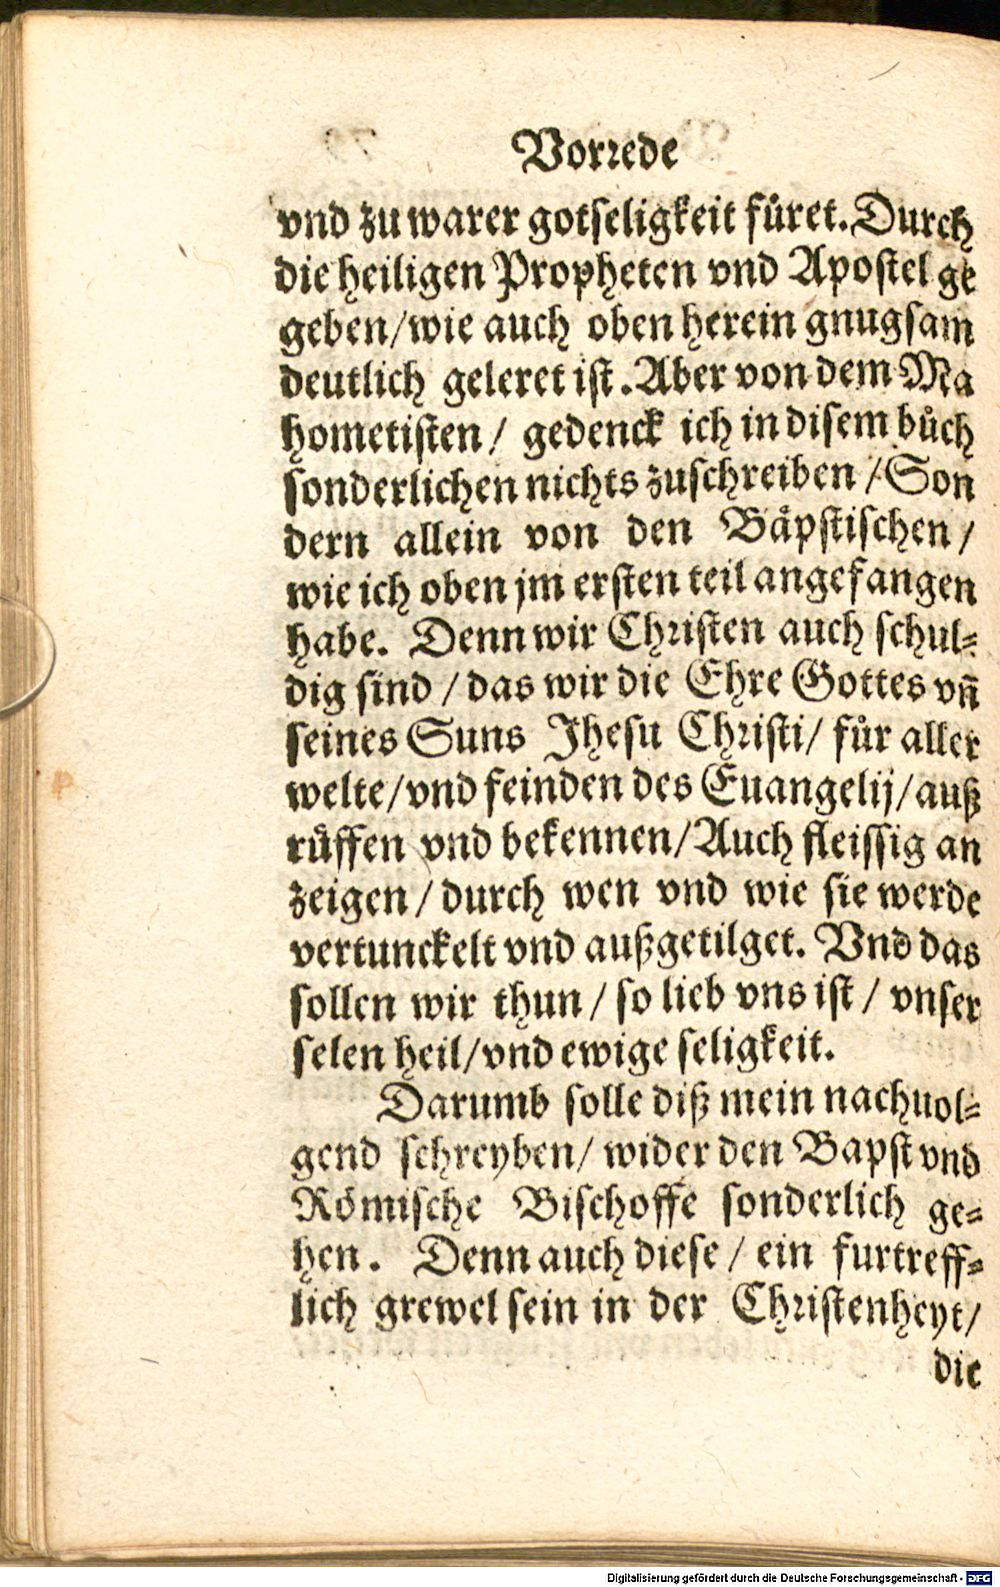 Vorrede
vnd zu warer gotseligkeit füret. Durch
die heiligen Propheten vnd Apostel ge
geben/wie auch oben herein gnugsam
deutlich geleret ist. Aber von dem Ma
hometisten/ gedenck ich in disem bůch
sonderlichen nichts zuschreiben / Son
dern allein von den Bäpstischen/
wie ich oben jm ersten teil angefangen
habe. Denn wir Christen auch schul⸗
dig sind / das wir die Ehre Gottes vñ
seines Suns Jhesu Christi/ für aller
welte/vnd feinden des Euangelij/auß
rüffen vnd bekennen/Auch fleissig an
zeigen/ durch wen vnd wie sie werde
vertunckelt vnd außgetilget. Vnd das
sollen wir thun / so lieb vns ist / vnser
selen heil/vnd ewige seligkeit.
Darumb solle diß mein nachuol⸗
gend schreyben/ wider den Bapst vnd
Römische Bischoffe sonderlich ge⸗
hen. Denn auch diese / ein furtreff⸗
lich grewel sein in der Christenheyt/
die
Digitalisierung gefördert durch die Deutsche Forschungsgemeinschaft - DFG